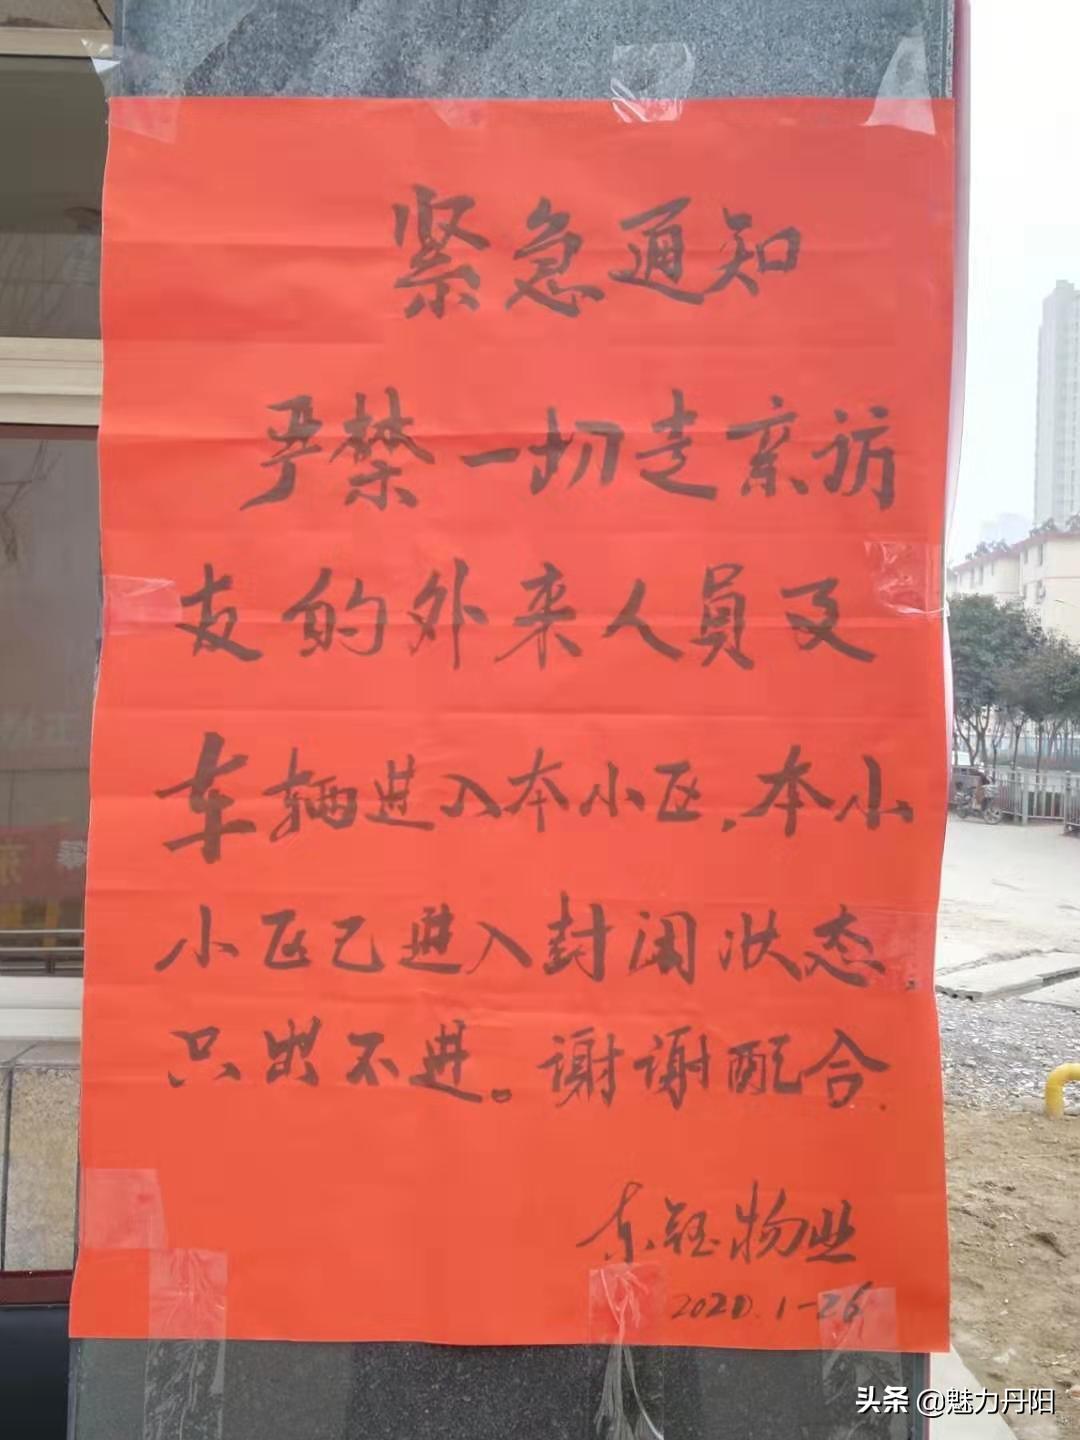 紧急通知
严禁一切走亲访
友的外来人员及
车辆进入本小区,本小
小区已进入封闭状态
只出不进。谢谢配合.
东钰物业
2020.1-26
头条 @魅力丹阳